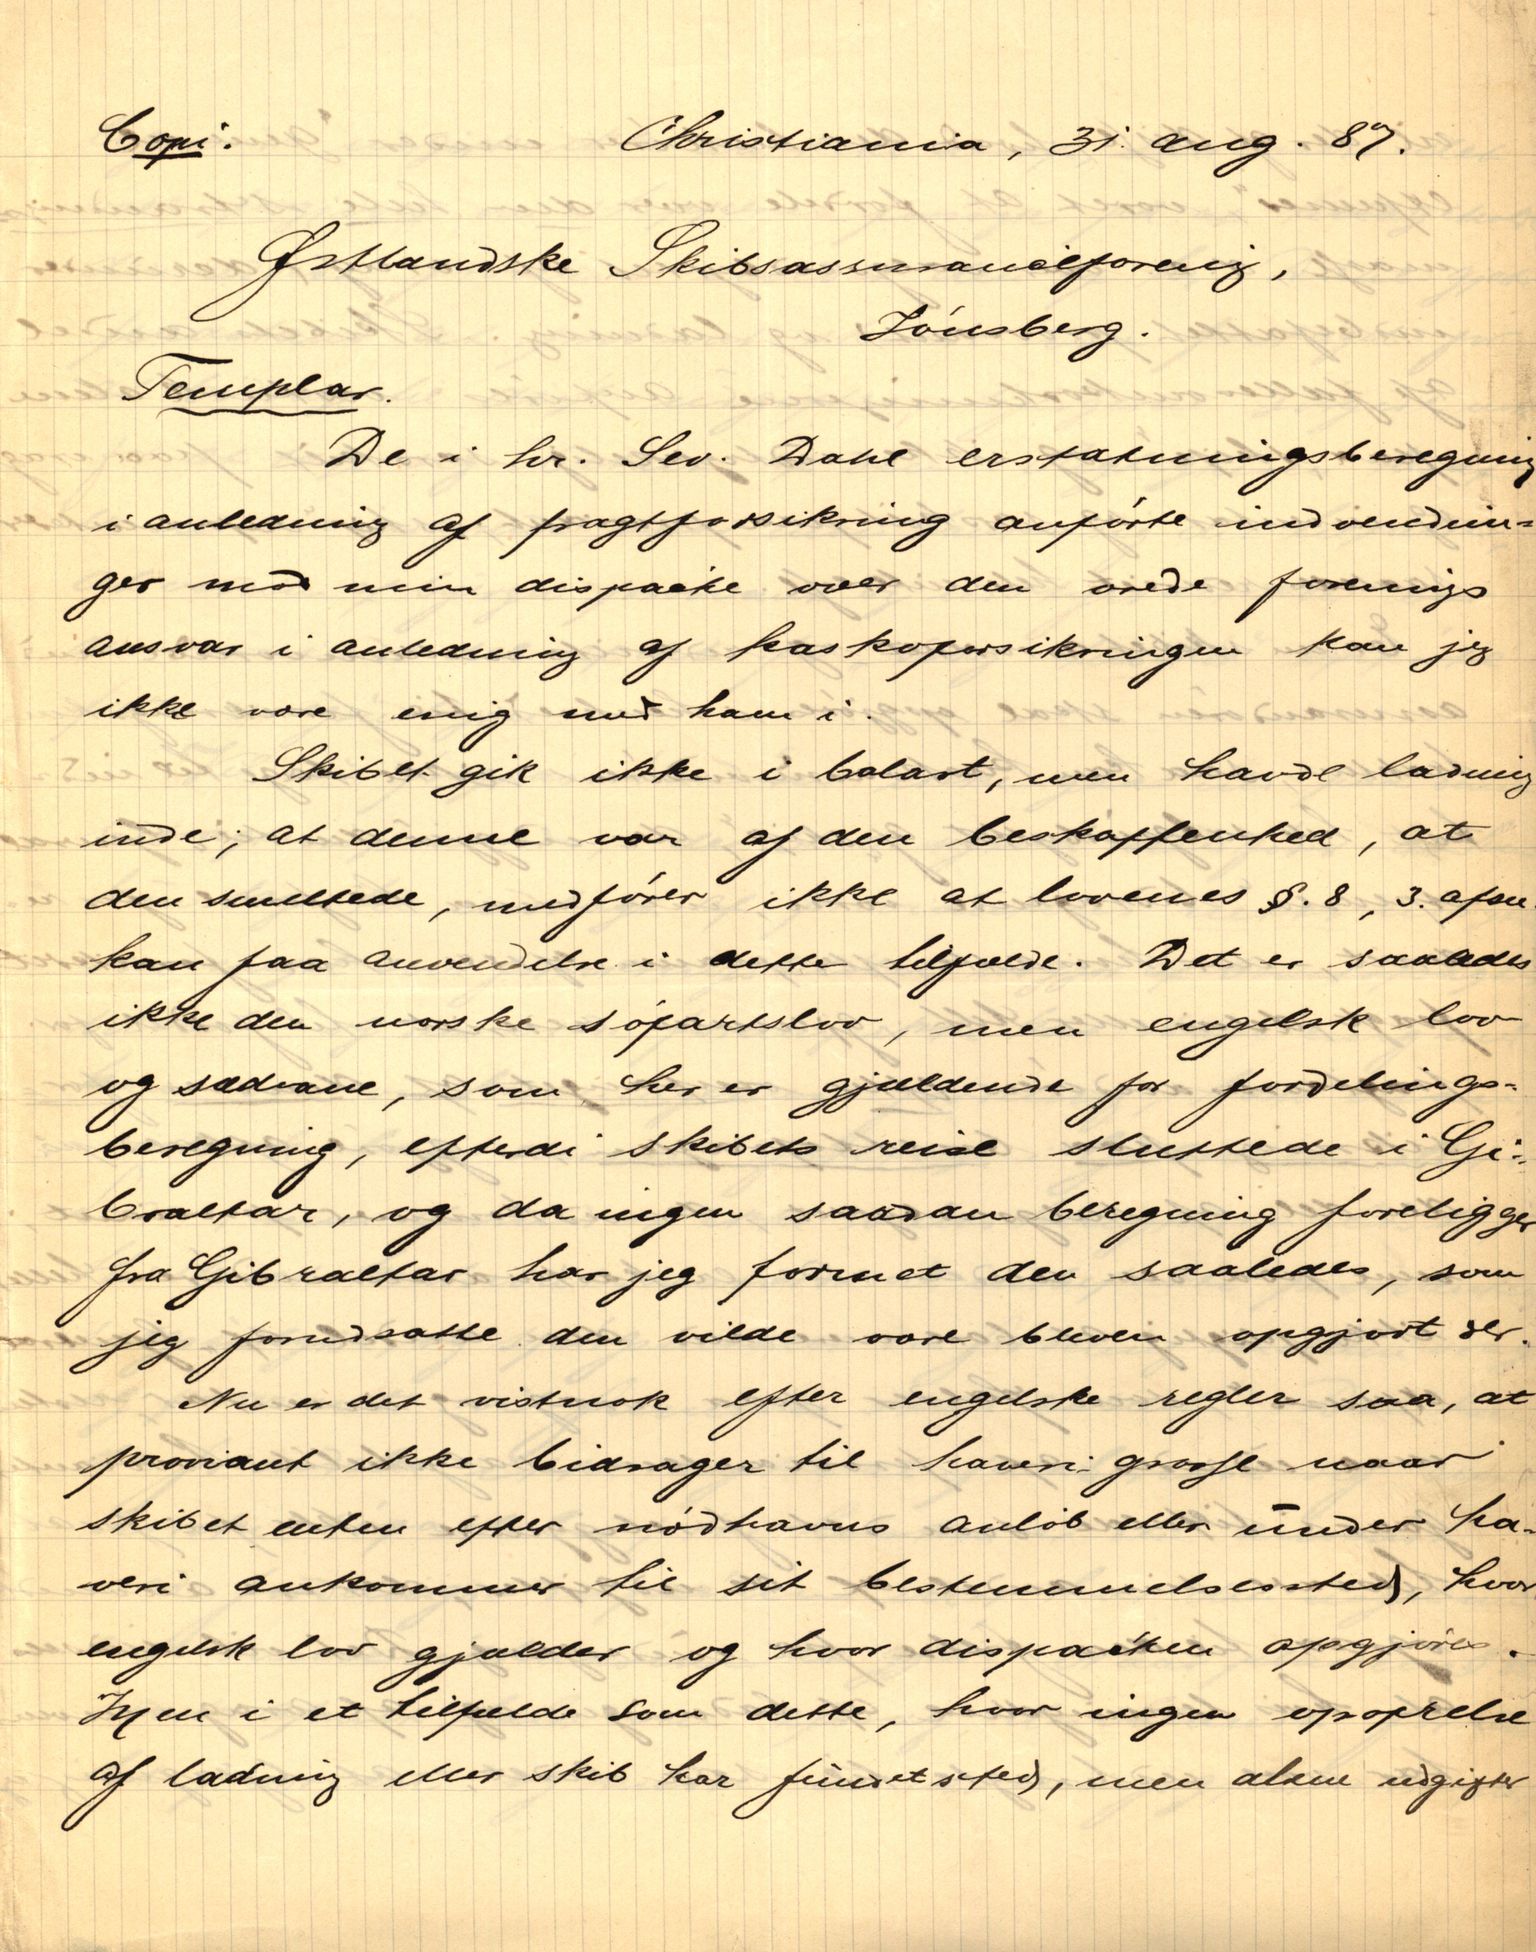 Copi. Christiania, 31. aug. 87.
Østlandske Skibsassuranceforenig,
Tónsberg.
Templar.
De i hr. Sev. Dahl erstatningsberegning
i anledning af fragtforsikring anfórte indvendin-
ger mod min dispache over den ærede forenigs
ansvar i anledning af kaskoforsikringen kan jeg
ikke være enig med ham i.
Skibet gik ikke i balast, men havde ladning
inde; at denne var af den beskaffenhed, at
den smeltede, medfórer ikke at lovenes §. 8, 3. afsn.
kan faa anvendelse i dette tilfælde. Det er saaledes
ikke den norske sófartslov, men engelsk lov
og sædvane, som her er gjældende for fordelings-
beregning, efterdi skibets reise sluttede i Gi-
braltar, og da ingen saadan beregning foreligger
fra Gibraltar har jeg formet den saaledes, som
jeg forudsatte den vilde være bleven opgjort der.
Nu er det vistnok efter engelske regler saa, at
proviant ikke bidrager til haveri-grosse naar
skibet enten efter nódhavns anlób eller under ha-
veri ankommer til sit bestemmelsessted, hvor
engelsk lov gjælder og hvor dispachen opgjóres.
Men i et tilfælde som dette, hvor ingen opofrelse
af ladning eller skib har fundet sted, men alene udgifter